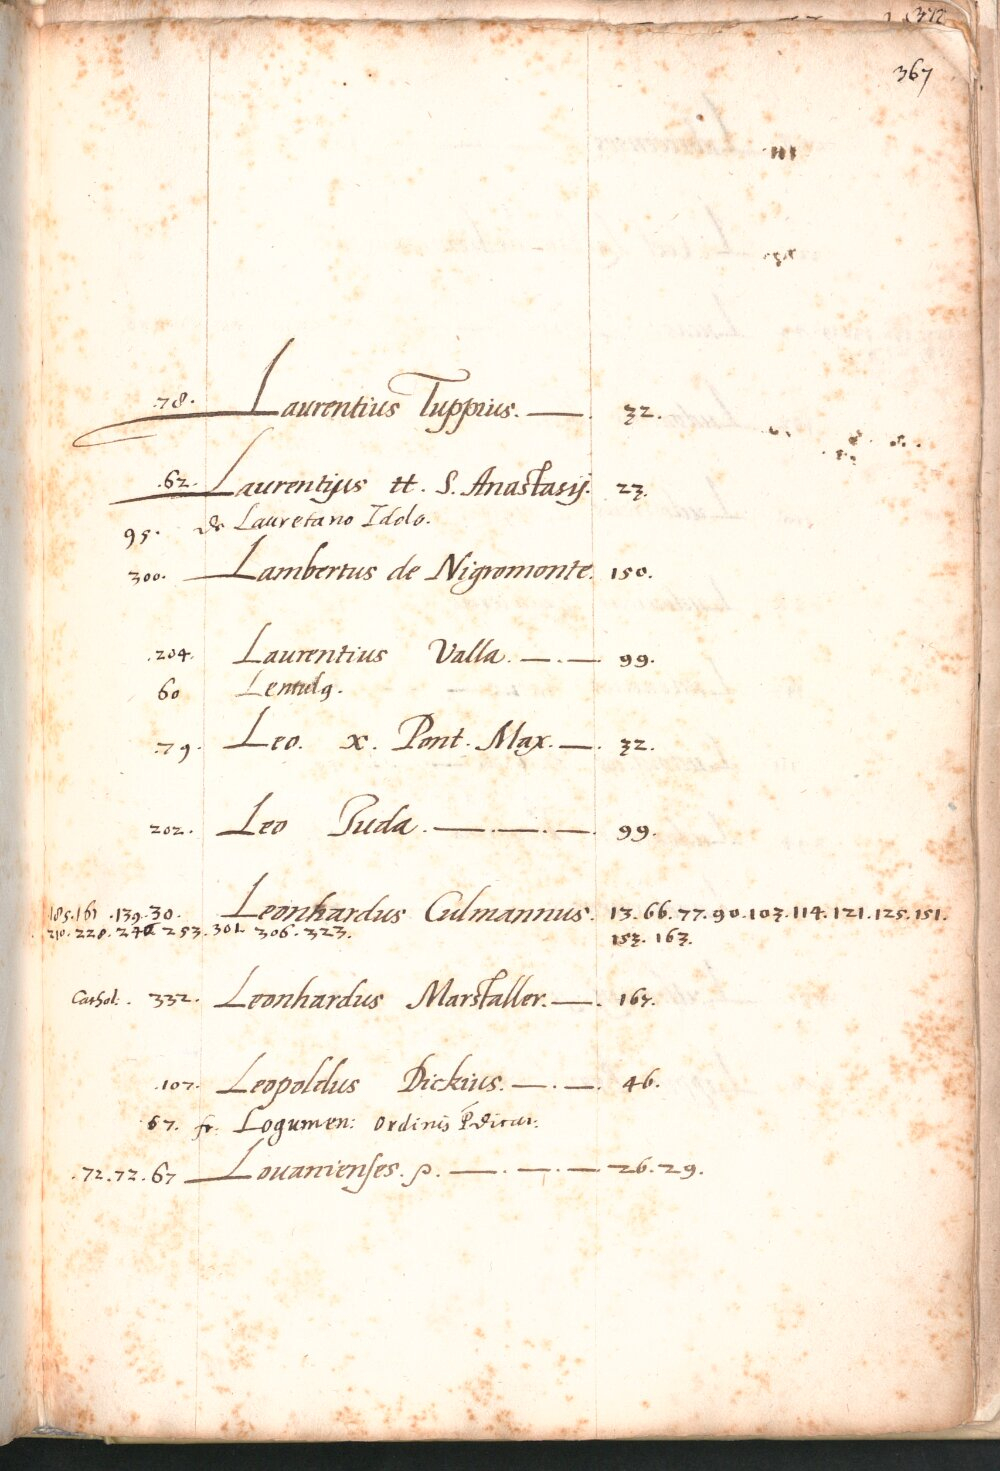 372
367
.78. Laurentius Tuppius. —. 32.
.62. Laurentijus et. S. Anastasij. 23.
95. de Lauretano Idolo.
300. Lambertus de Nigromonte. 150.
.204. Laurentius Valla. —.— 99.
60 Lentulꝯ.
.79. Leo. x. Pont. Max. —. 32.
202. Leo Juda. —.—.—. 99.
185.161 .139.30. Leonhardus Culmannus. 13.66.77.90.103.114.121.125.151.
210.220. 253.301 306.323. 153. 163.
Cathol: . 332. Leonhardus Marstaller. —. 167.
.107. Leopoldus Dickius. —.—. 46.
67. fr. Logumen: Ordinis P̄dicat.
.72.72.67 Louanienses. —.—.— 26.29.